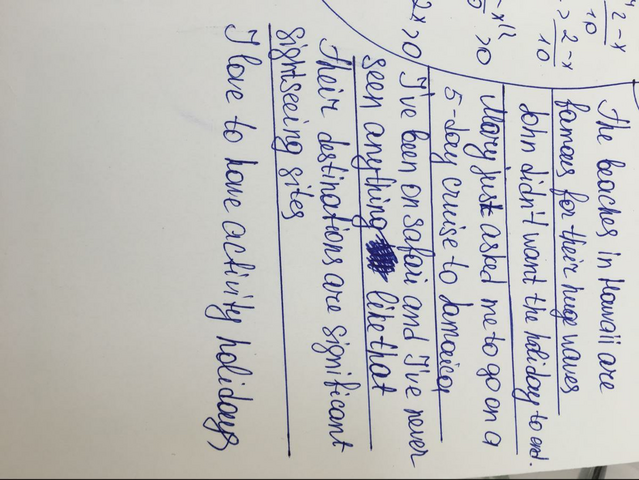 The beaches in Hawaii are
famous for their huge waves
John didn't want the holiday to end.
Mary just asked me to go on a
5-day cruise to Jamaica
I've been on safari and I've never
seen anything like that
Their destinations are significant
sightseeing sites
I love to have activity holidays
2-x
10
> 2-x
10
-x
>0
2x>0